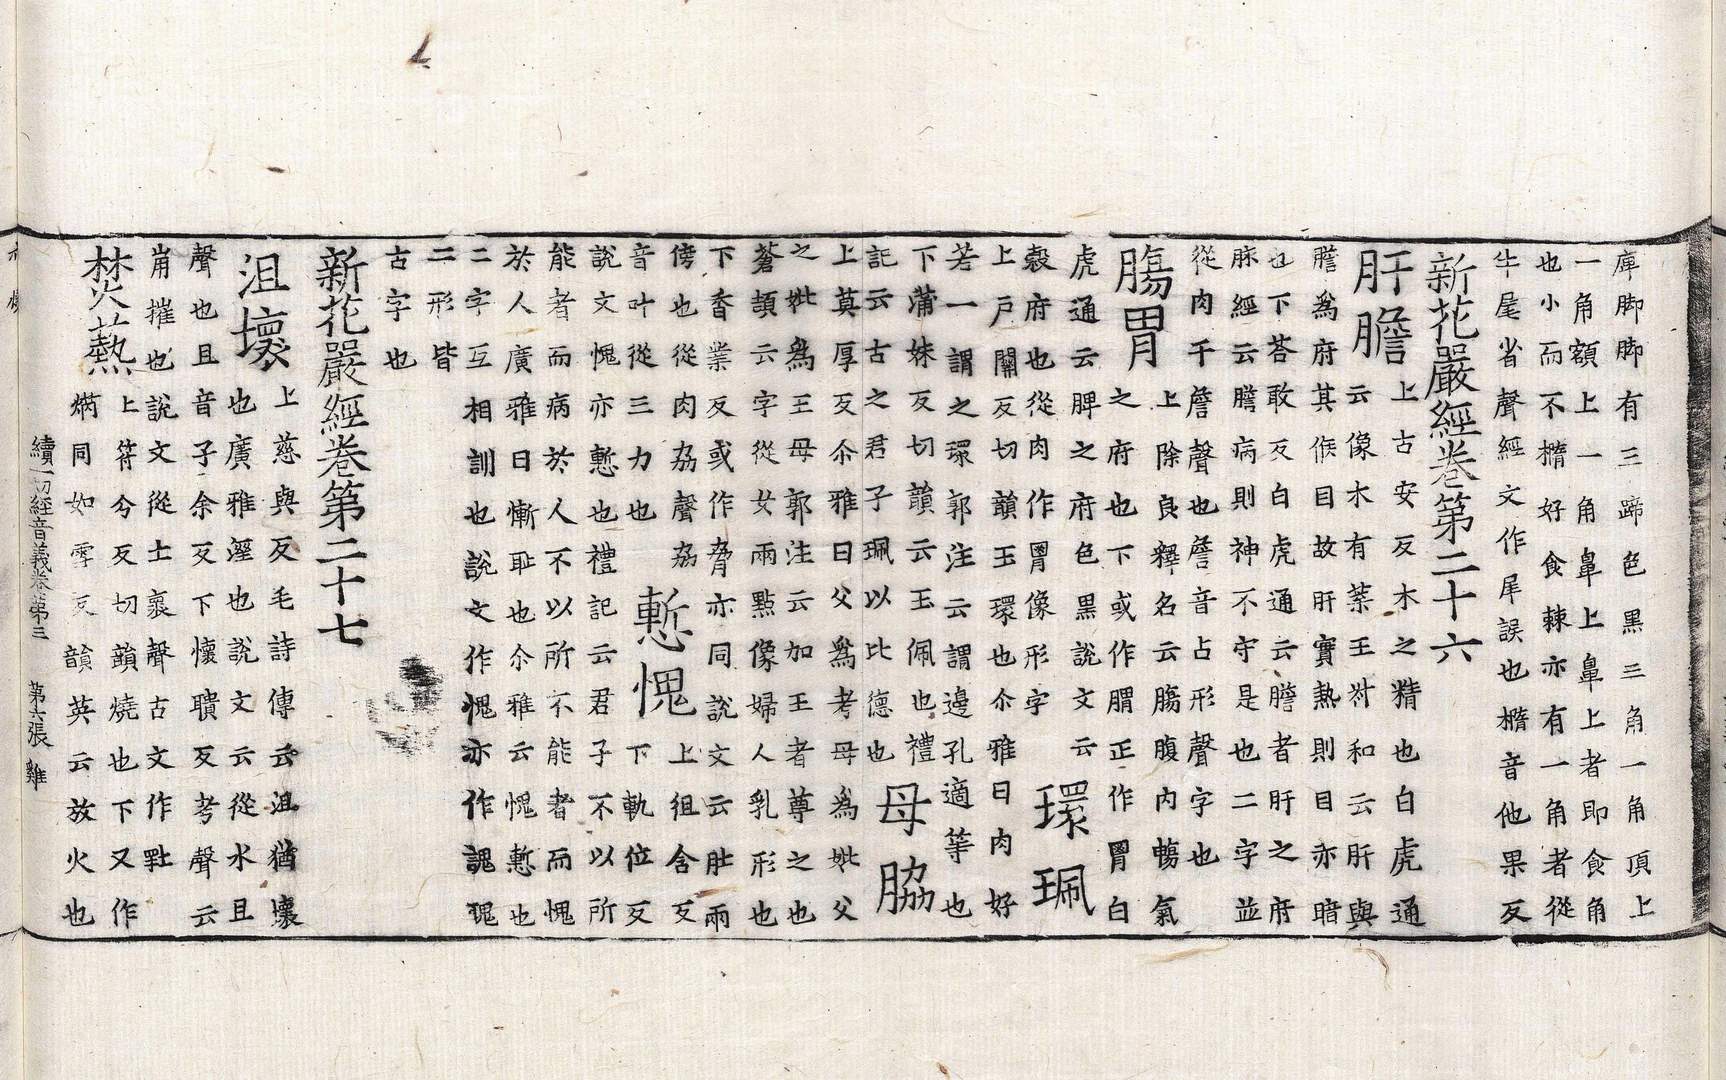 庳脚脚有三蹄色黑三角一角頂上
一角額上一角鼻上鼻上者即食角
也小而不橢好食棘亦有一角者從
牛尾省聲經文作犀誤也橢音他果反
新花嚴經卷第二十六
肝膽
上古安反木之精也白虎通
云像木有葉王村和云肝與
膽為府其候目故肝實熱則目亦暗
也下荅敢反白虎通云膽者肝之府
脉經云膽病則神不守是也二字並
從肉干詹聲也詹音占形聲字也
腸胃
上除良釋名云腸腹内暢氣
之府也下或作𦞅正作胃白
虎通云脾之府色黒說文云
穀府也從肉作胃像形字
環珮
上戸關反切韻玉環也尒雅曰肉好
若一謂之環郭注云謂邊孔適等也
下蒲妹反切韻云玉佩也禮
記云古之君子珮以比德也
母脇
上莫厚反尒雅曰父為考母為妣父
之妣為王母郭注云加王者尊之也
蒼頡云字從女兩點像婦人乳形也
下香業反或作脅亦同說文云肚兩
傍也從肉劦聲劦
音叶從三力也
慙愧
上徂含反
下軌位反
說文愧亦慙也禮記云君子不以所
能者而病於人不以所不能者而愧
於人廣雅曰慚耻也尒雅云愧慙也
二字互相訓也說文作愧亦作謉聭
二形皆
古字也
新花嚴經卷第二十七
沮壞
上慈與反毛詩傳云沮猶壞
也廣雅溼也說文云從水且
聲也且音子余反下懷聵反考聲云
崩摧也說文從土褱聲古文作𡊣
焚爇
上符分反切韻燒也下又作
焫同如雪反韻英云放火也
續一切經音義卷第三　第六張　雞